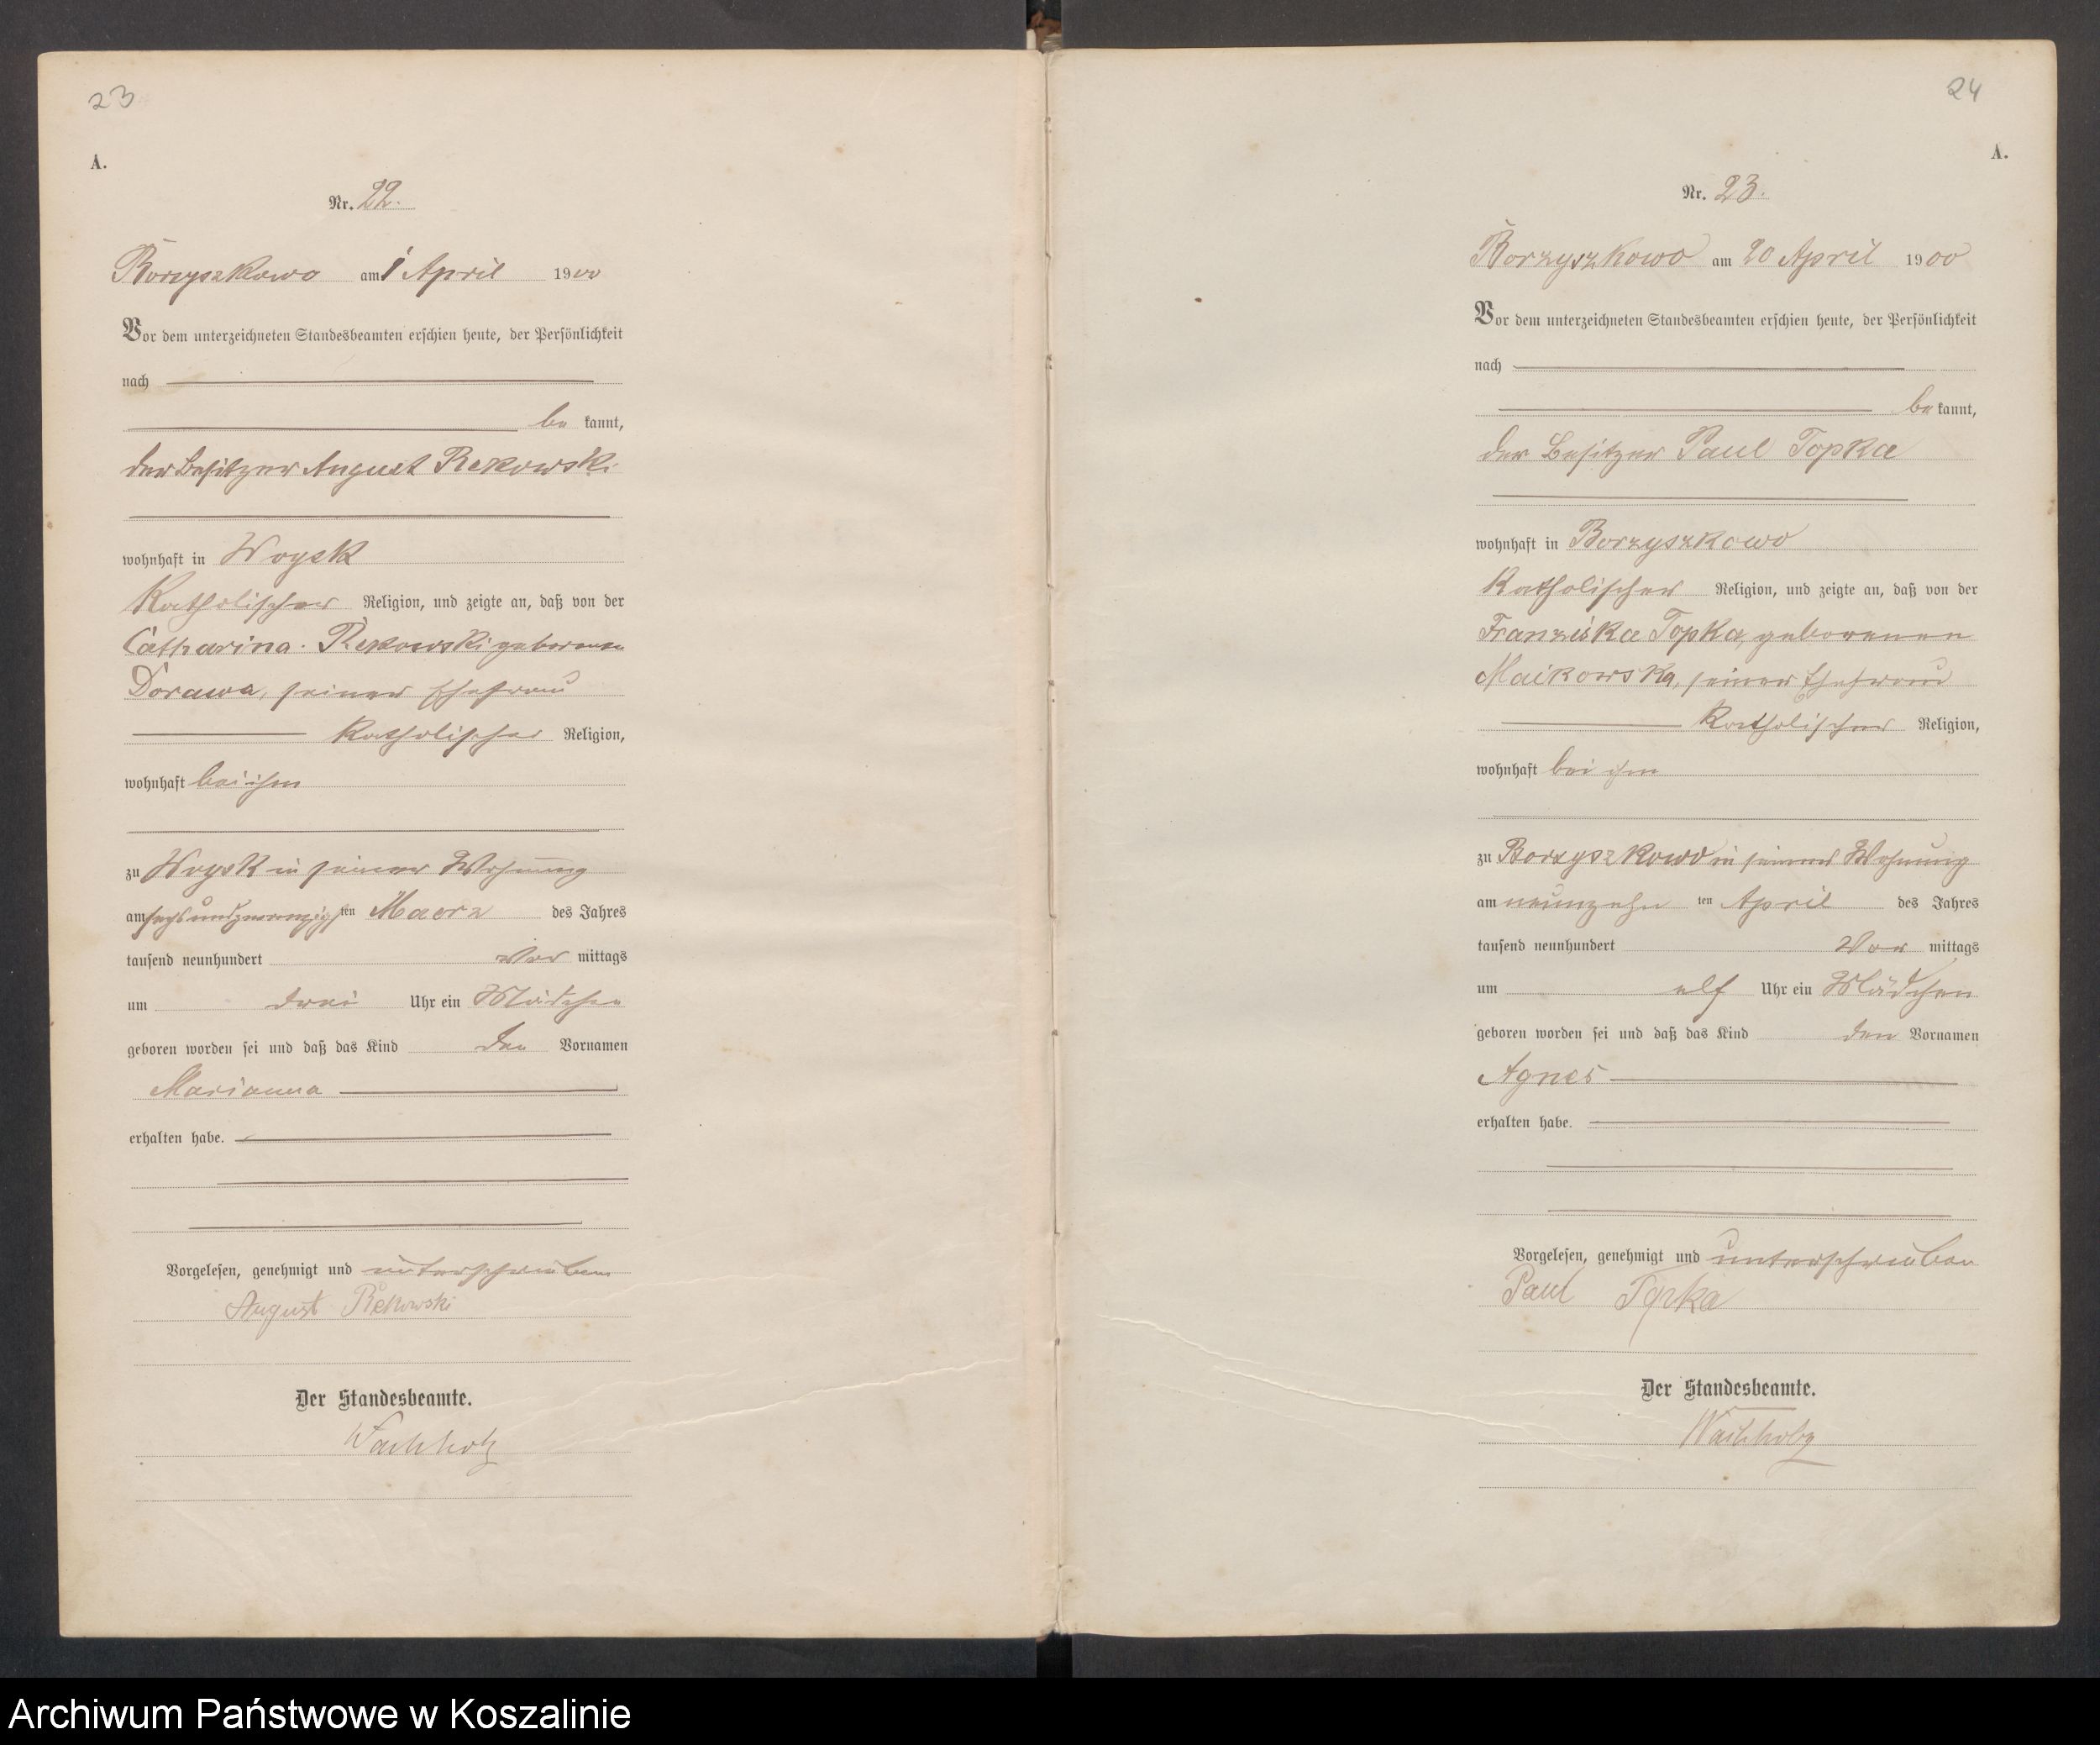 23
A.
Nr. 22.
Borzyszkowo am 1 April 1900
Vor dem unterzeichneten Standesbeamten erschien heute, der Persönlichkeit
nach
be kannt,
der Besitzer August Rekowski
wohnhaft in Woysk
Katholischer Religion, und zeigte an, daß von der
Catharina Rekowski geborenen
Dorawa, seiner Ehefrau
Katholischer Religion,
wohnhaft bei ihm
zu Woysk in seiner Wohnung
am sechsundzwanzigsten Maerz des Jahres
tausend neunhundert Vor mittags
um drei Uhr ein Mädchen
geboren worden sei und daß das Kind den Vornamen
Marianna
erhalten habe.
Vorgelesen, genehmigt und unterschrieben
August Rekowski
Der Standesbeamte.
Wachholz
24
A.
Nr. 23.
Borzyszkowo am 20 April 1900
Vor dem unterzeichneten Standesbeamten erschien heute, der Persönlichkeit
nach
be kannt,
der Besitzer Paul Topka
wohnhaft in Borzyszkowo
Katholischer Religion, und zeigte an, daß von der
Franziska Topka, geborenen
Maikowska, seiner Ehefrau
Katholischer Religion,
wohnhaft bei ihm
zu Borzyszkowo in seiner Wohnung
am neunzehn ten April des Jahres
tausend neunhundert Vor mittags
um elf Uhr ein Mädchen
geboren worden sei und daß das Kind den Vornamen
Agnes
erhalten habe.
Vorgelesen, genehmigt und unterschrieben
Paul Topka
Der Standesbeamte.
Wachholz
Archiwum Państwowe w Koszalinie